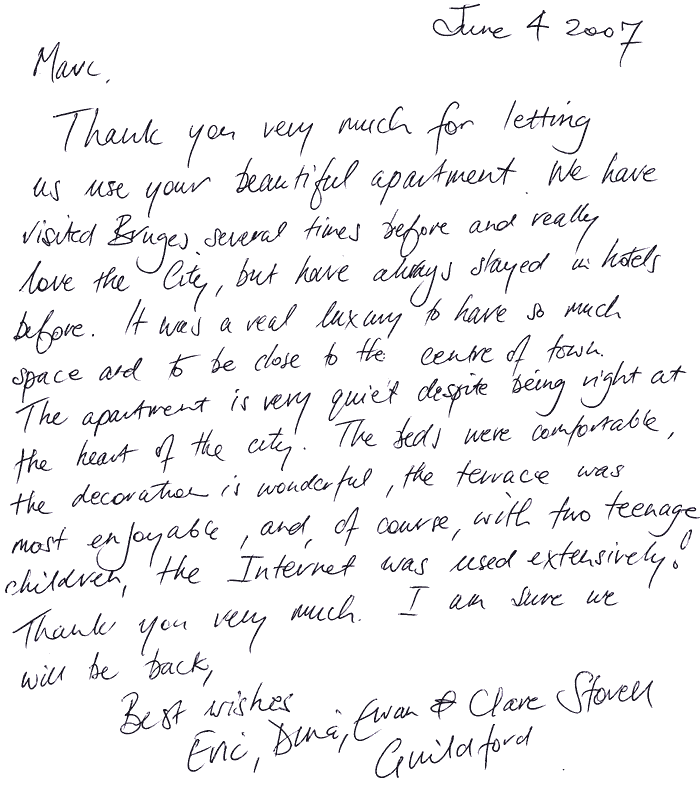 June 4 2007
Marc,
Thank you very much for letting
us use your beautiful apartment. We have
visited Bruges several times before and really
love the City, but have always stayed in hotels
before. It was a real luxury to have so much
space and to be close to the centre of town.
The apartment is very quiet despite being right at
the heart of the city. The beds were comfortable,
the decoration is wonderful, the terrace was
most enjoyable, and, of course, with two teenage
children, the Internet was used extensively!
Thank you very much. I am sure we
will be back,
Best wishes
Eric, Dina, Ewan & Clare Stovell
Guildford